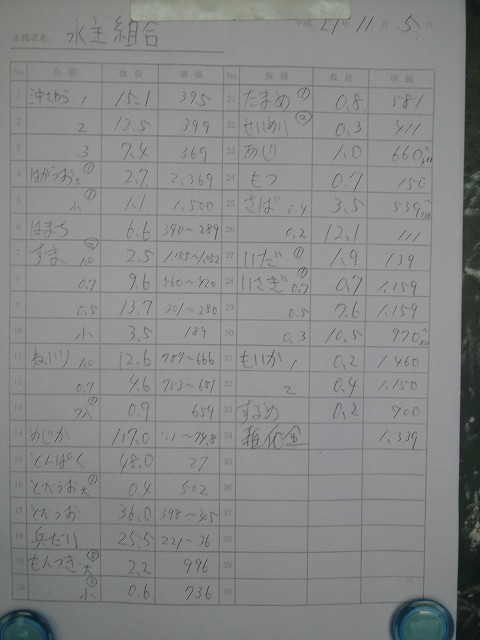 平成 21 年 11 月 5 日
水揚者名 水主組合
No 魚種 数量 単価 No 魚種 数量 単価
1 沖さわら 1 15.1 395
2 2 12.5 399
3 3 7.4 369
4 はがつお大① 2.7 2,369
5 小① 1.1 1,500
6 はまち 6.6 390~289
7 すま② 1.0 2.5
8 0.7 9.6 560~420
9 0.5 13.7 301~280
10 小 3.5 189
11 ねいり 1.0 12.6 789~666
12 0.7 4.6 753~651
13 0.9 659
14 めじか 117.0
15 とんぱく 48.0 27
16 0.4 502
17 36.0 398~305
18 25.5 221~36
19 もんつき大 2.2 996
20 小 0.6 736
21 たまめ① 0.8 581
22 せいめい② 0.3 411
23 あじ 1.0 660
24 もつ 0.7 150
25 さば 0.4 3.5 539
26 0.2 12.1 111
27 いだ① 1.9 139
28 いさぎ① 0.7 0.7 1,159
29 0.5 7.6 1,159
30 0.3 10.5 970
31 もいか 1 0.2 1,460
32 2 0.4 1,150
33 するめ 0.2 900
34 雑化金 1,339
35
36
37
38
39
40